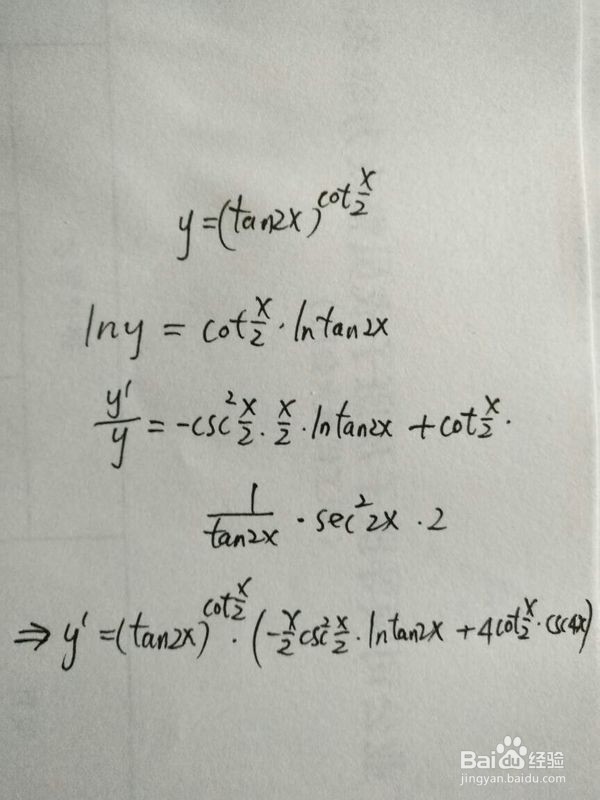 y=(tan2x)^{cot\frac{x}{2}}
lny = cot\frac{x}{2}·lntan2x
\frac{y'}{y} = -csc^2\frac{x}{2}·\frac{x}{2}·lntan2x + cot\frac{x}{2}·
\frac{1}{tan2x}·sec^2 2x·2
⇒ y' = (tan2x)^{cot\frac{x}{2}}·(-\frac{x}{2}csc^2\frac{x}{2}·lntan2x + 4cot\frac{x}{2}·csc4x)
Bai du 经验
jingyan.baidu.com